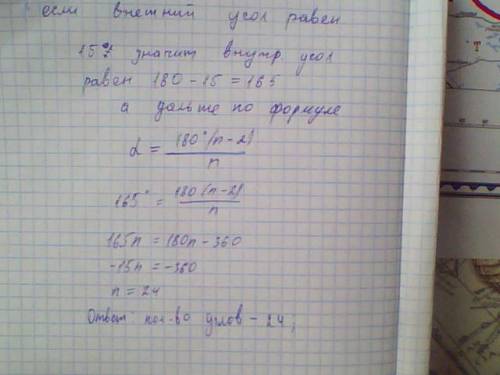 если внешний угол равен
15° значит внутр. угол
равен 180 - 15 = 165
а дальше по формуле
α = 180°(n-2)/n
165° = 180(n-2)/n
165n = 180n - 360
-15n = -360
n = 24
Ответ: кол-во углов - 24;